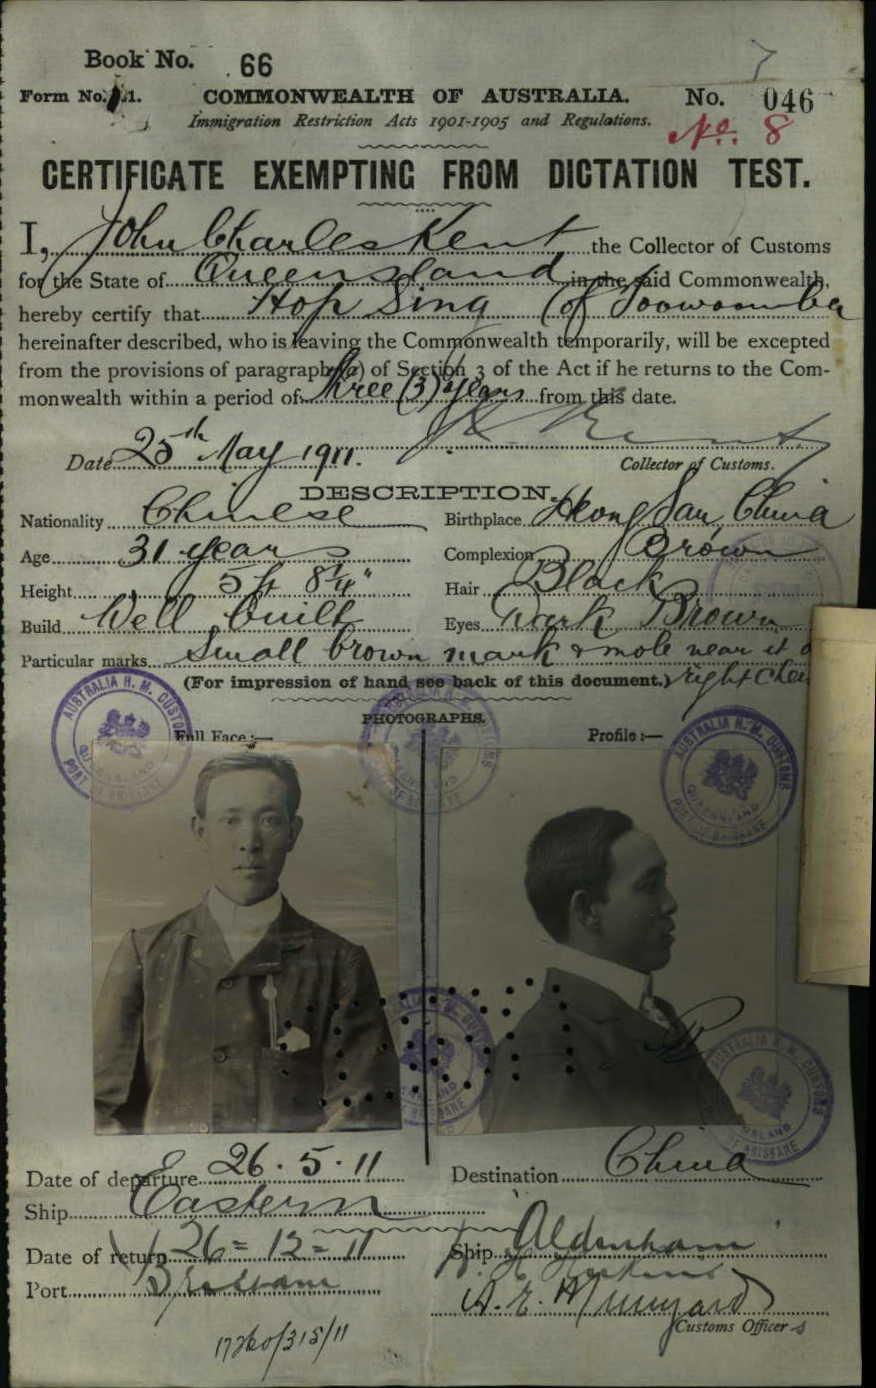 Book No. 66
Form No. 21. COMMONWEALTH OF AUSTRALIA. No. 046
Immigration Restriction Acts 1901-1905 and Regulations. No. 8
CERTIFICATE EXEMPTING FROM DICTATION TEST.
I, John Charles Kent the Collector of Customs
for the State of Queensland in the said Commonwealth,
hereby certify that Hop Sing (of Toowoomba
hereinafter described, who is leaving the Commonwealth temporarily, will be excepted
from the provisions of paragraph (a) of Section 3 of the Act if he returns to the Com-
monwealth within a period of three (3) years from this date.
Date 25th May 1911.
Collector of Customs.
DESCRIPTION.
Nationality Chinese Birthplace Heong San, China
Age 31 years Complexion Brown
Height 5 ft 8¼" Hair Black
Build Well built Eyes Dark Brown
Particular marks Small brown mark & mole near it
(For impression of hand see back of this document.) right
PHOTOGRAPHS.
Full Face:— Profile:—
AUSTRALIA H. M. CUSTOMS
QUEENSLAND
PORT OF BRISBANE
AUSTRALIA H. M. CUSTOMS
QUEENSLAND
PORT OF BRISBANE
Date of departure 26.5.11 Destination China
Ship Eastern
Date of return 26=12=11 Ship Aldenham
Port Brisbane
Customs Officer